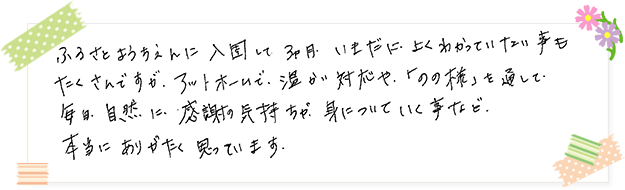 ふるさとようちえんに入園して3ヶ月。いまだに、よくわかっていない事も
たくさんですが、アットホームで、温かい対応や、「のの様」を通して、
毎日、自然に、感謝の気持ちが、身についていく事など、
本当にありがたく思っています。